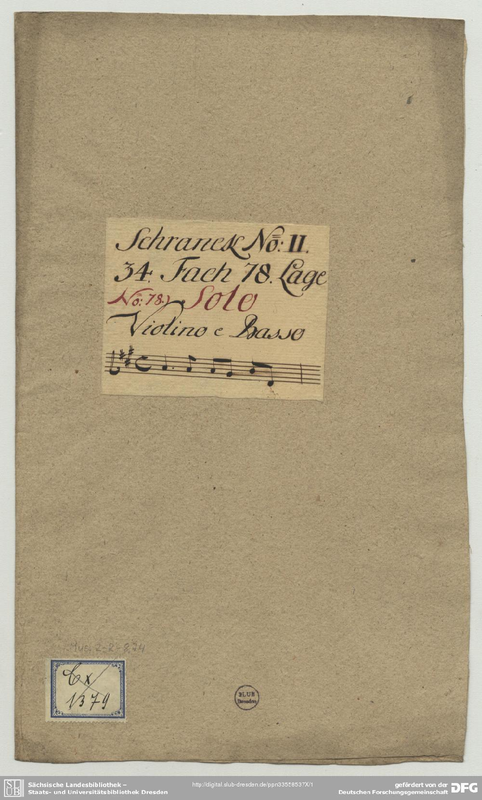 Schranck No: II.
34. Fach 78. Lage
No: 78.) Solo
Violino e Basso
Mus. 2-R-
Cx
1379
SLUB
Dresden
Sächsische Landesbibliothek –
Staats- und Universitätsbibliothek Dresden
http://digital.slub-dresden.de/ppn33559537X/1
gefördert von der
Deutschen Forschungsgemeinschaft
DFG